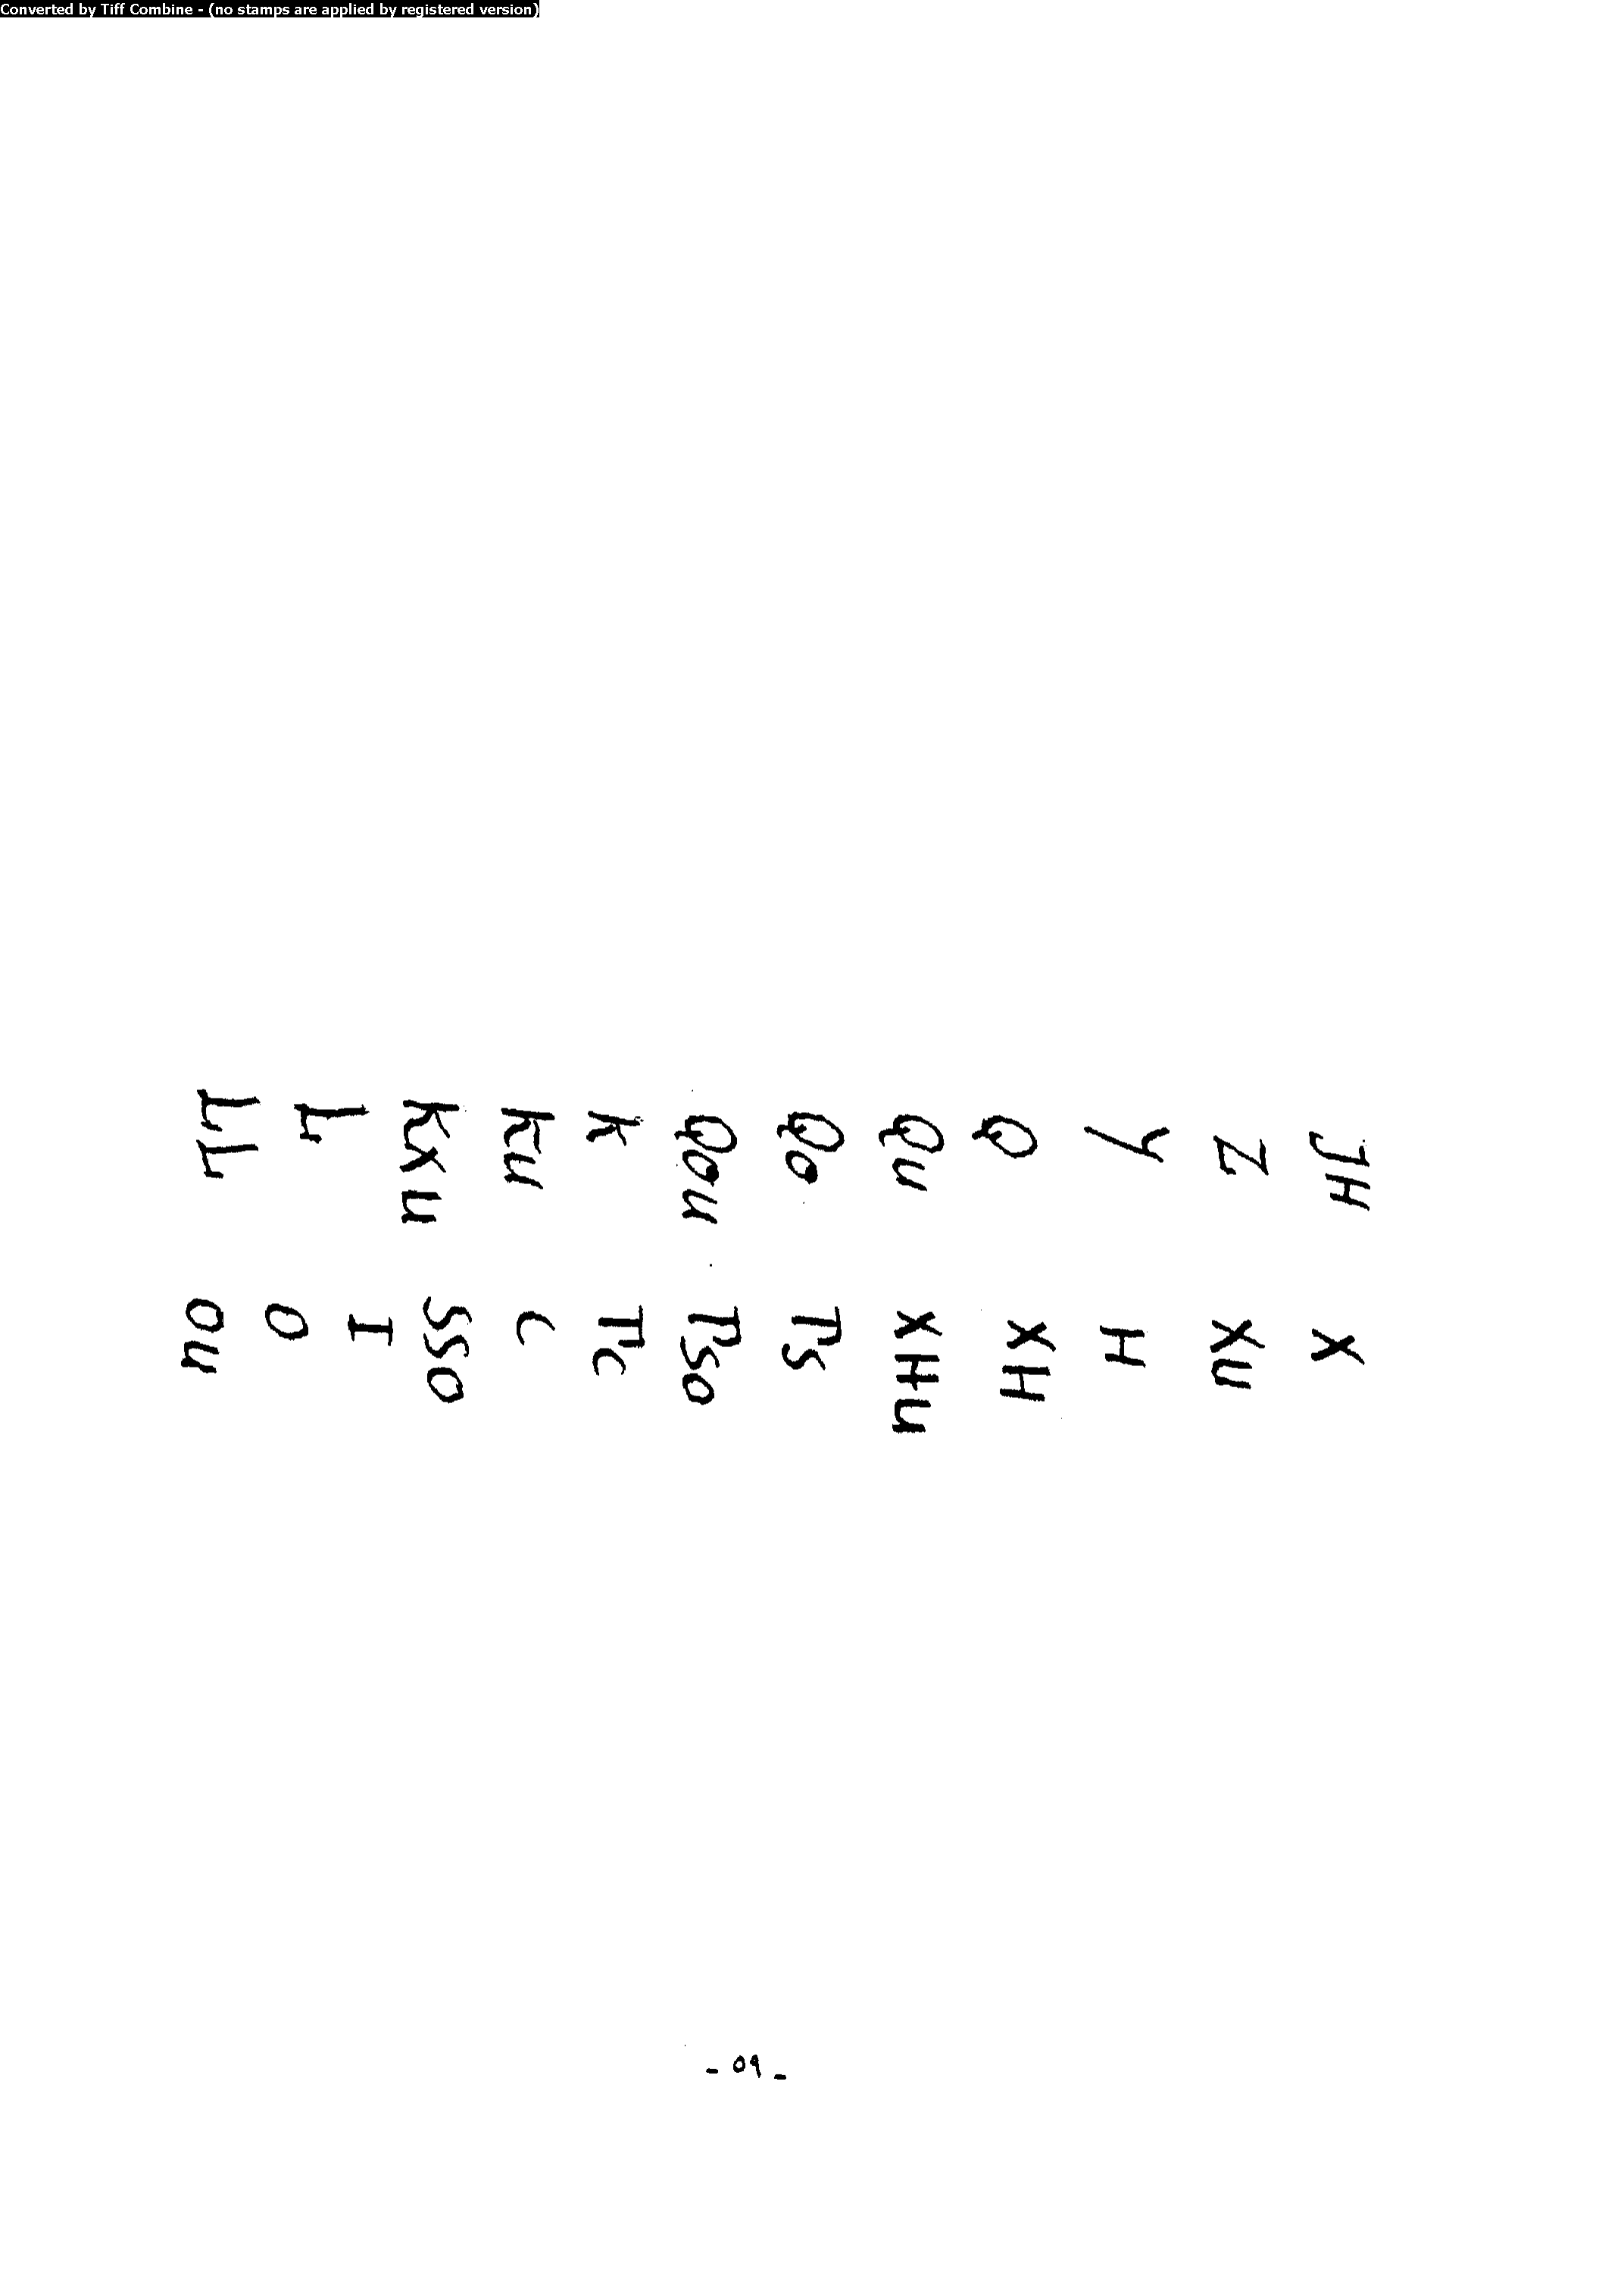 Converted by Tiff Combine - (no stamps are applied by registered version)
JH X
Z Xu
Y H
Q XH
Qu XHu
Qo TS
Qou TSO
K TC
Ku C
KXu SSO
L I
LL O
Ou
- 09 -